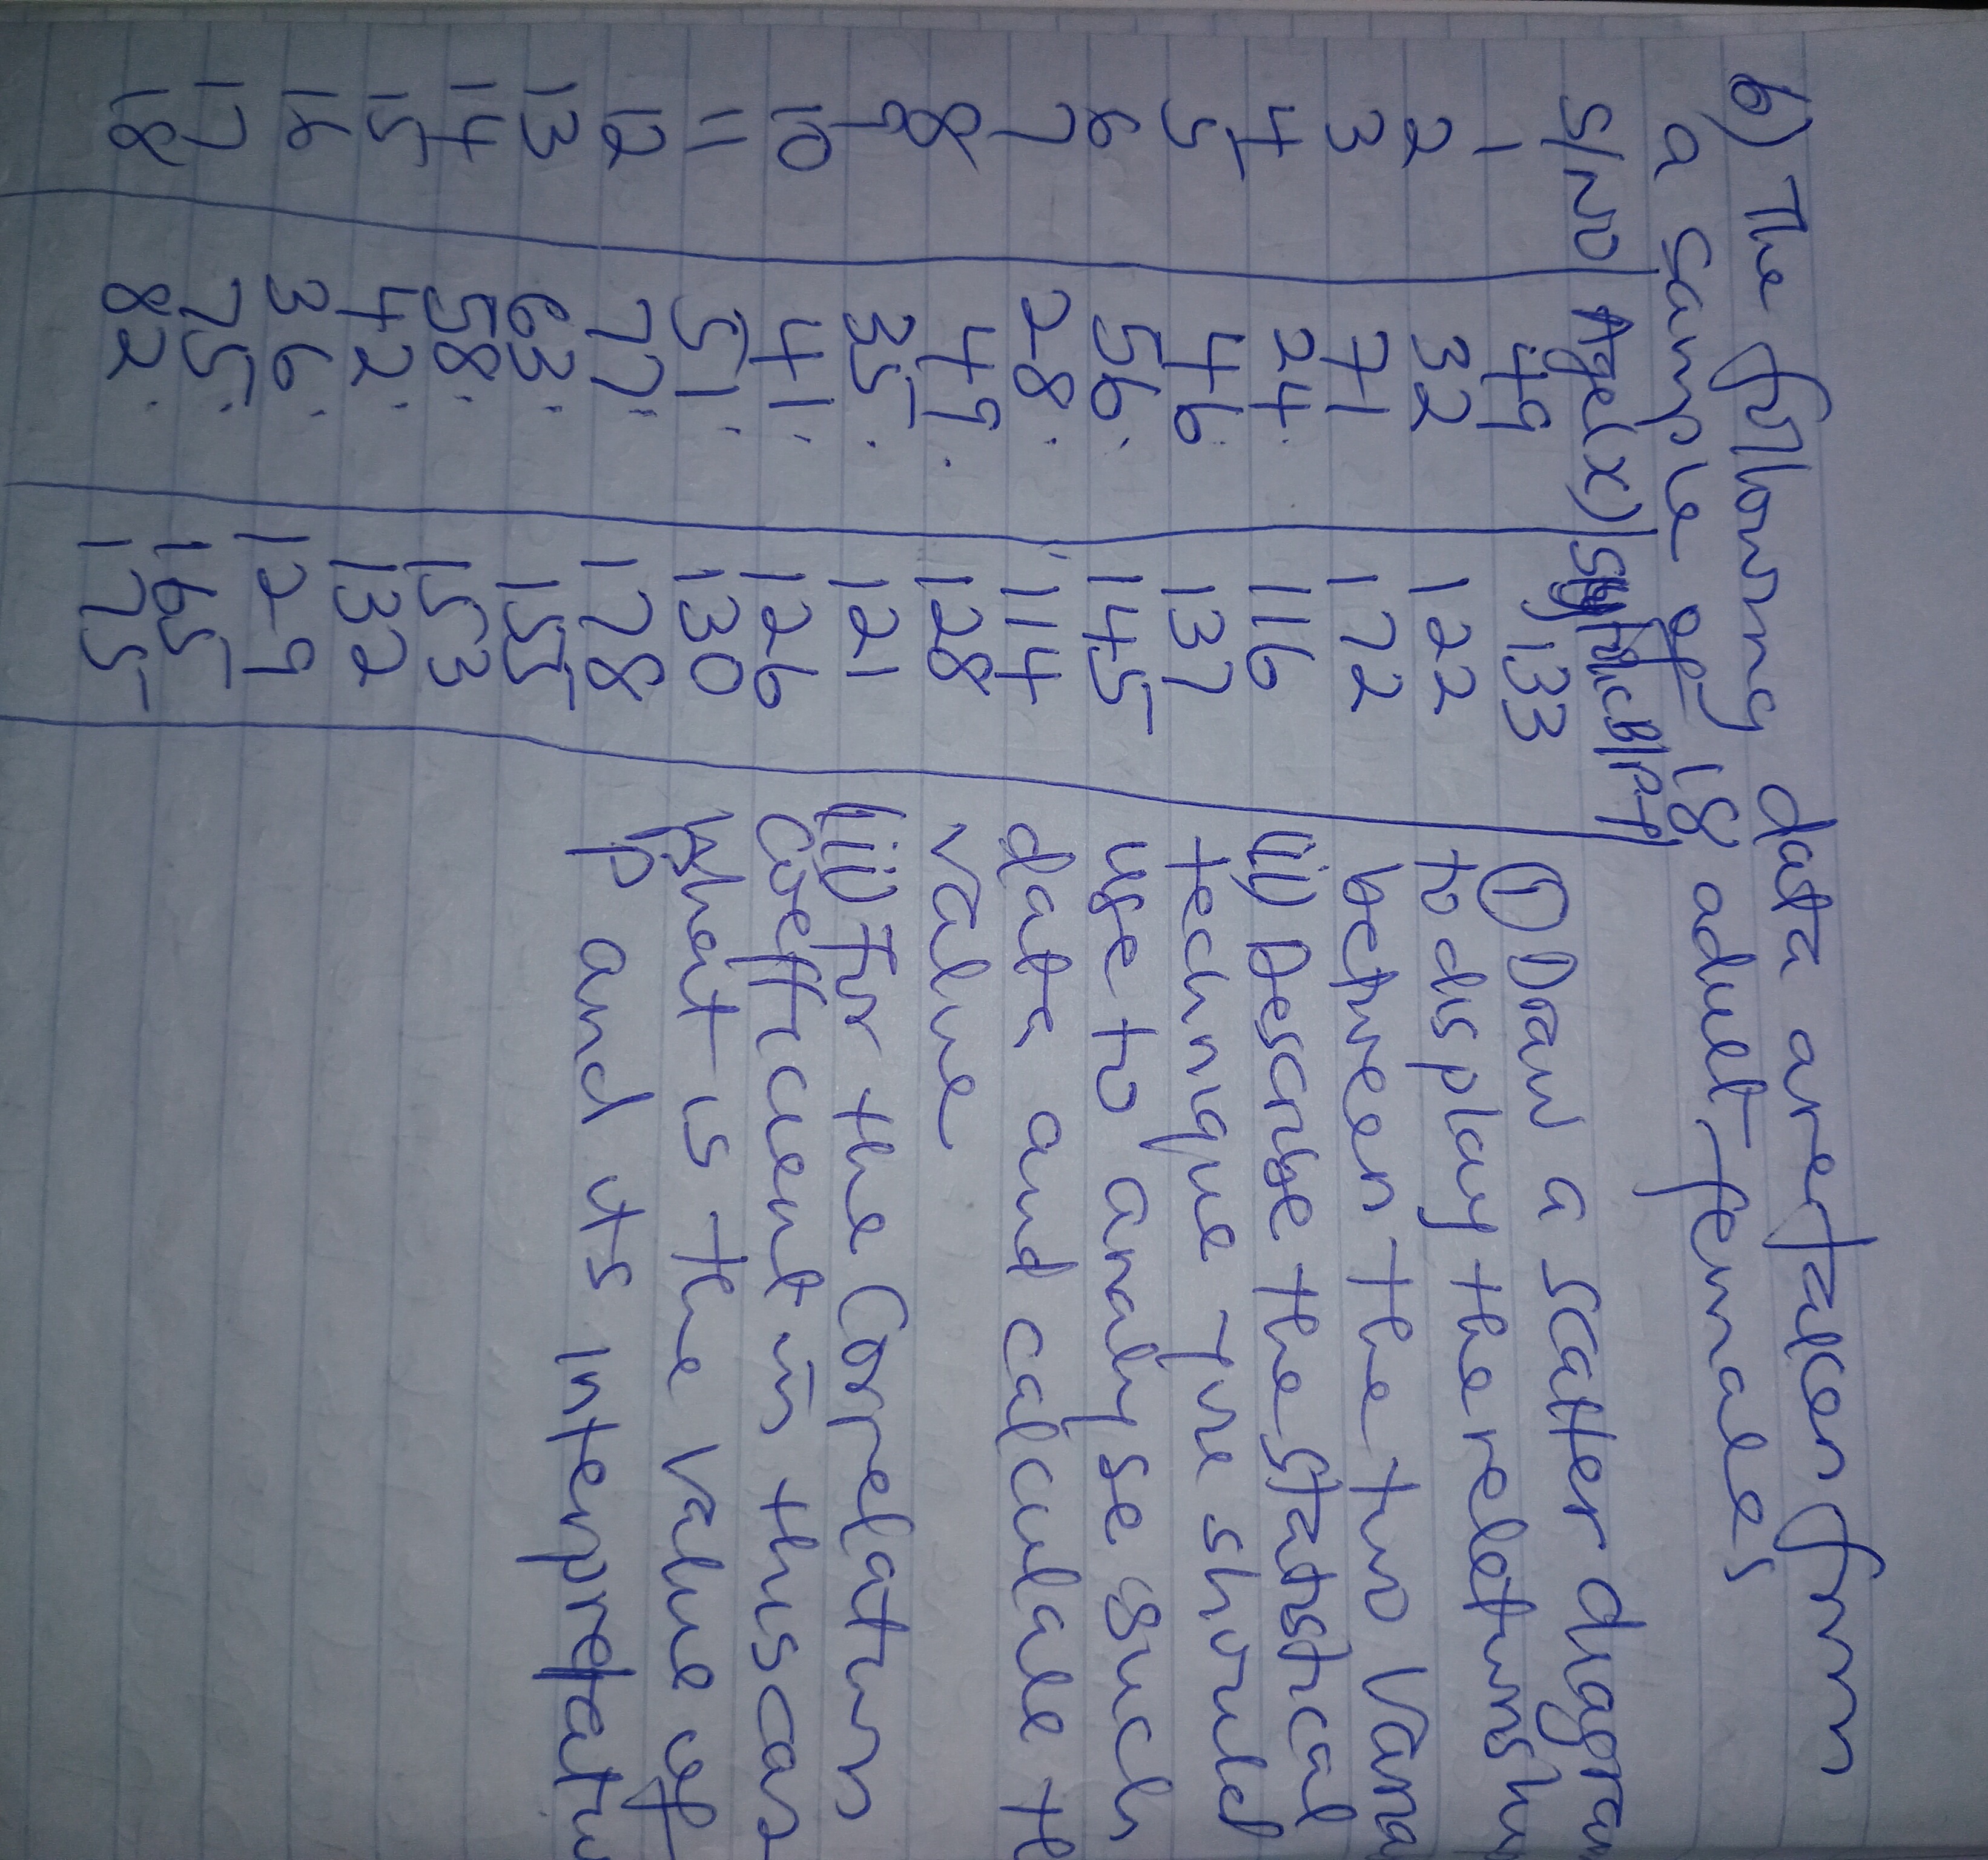 b) The following data are taken from
a sample of 18 adult females
S/NO Age(x) Systolic B/P(Y)
1 49 133
2 32 122
3 71 172
4 24 116
5 46 137
6 56 145
7 28 114
8 49 128
9 35 121
10 41 126
11 51 130
12 77 178
13 63 155
14 58 153
15 42 132
16 36 129
17 75 165
18 82 175
(i) Draw a scatter diagram
to display the relationship
between the two Varia
(ii) Describe the statistical
technique you should
use to analyse such
data and calculate th
value
(iii) For the Correlation
Coefficient in this case
What is the value of
p and its interpretation